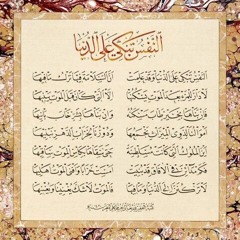 النفس تبكي على الدنيا
النفس تبكي على الدنيا وقد علمت أن السلامة فيها ترك ما فيها
لا دار للمرء بعد الموت يسكنها إلا التي كان قبل الموت بانيها
فإن بناها بخير طاب مسكنه وإن بناها بشر خاب بانيها
أموالنا لذوي الميراث نجمعها ودورنا لخراب الدهر نبنيها
أين الملوك التي كانت مسلطنة حتى سقاها بكأس الموت ساقيها
فكم مدائن في الآفاق قد بنيت أمست خرابا وأفنى الموت أهليها
لا تركنن إلى الدنيا وما فيها فالموت لا شك يفنينا ويفنيها